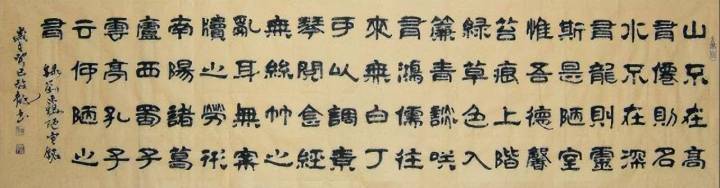 山不在高
有僊則名
水不在深
有龍則靈
斯是陋室
惟吾德馨
苔痕上階
綠草色入
簾青談咲
有鴻儒往
來無白丁
可以調素
琴閱金經
無絲竹之
亂耳無案
牘之勞形
南陽諸葛
廬西蜀子
雲亭孔子
云何陋之
有
錄劉禹錫陋室銘
歲在癸巳